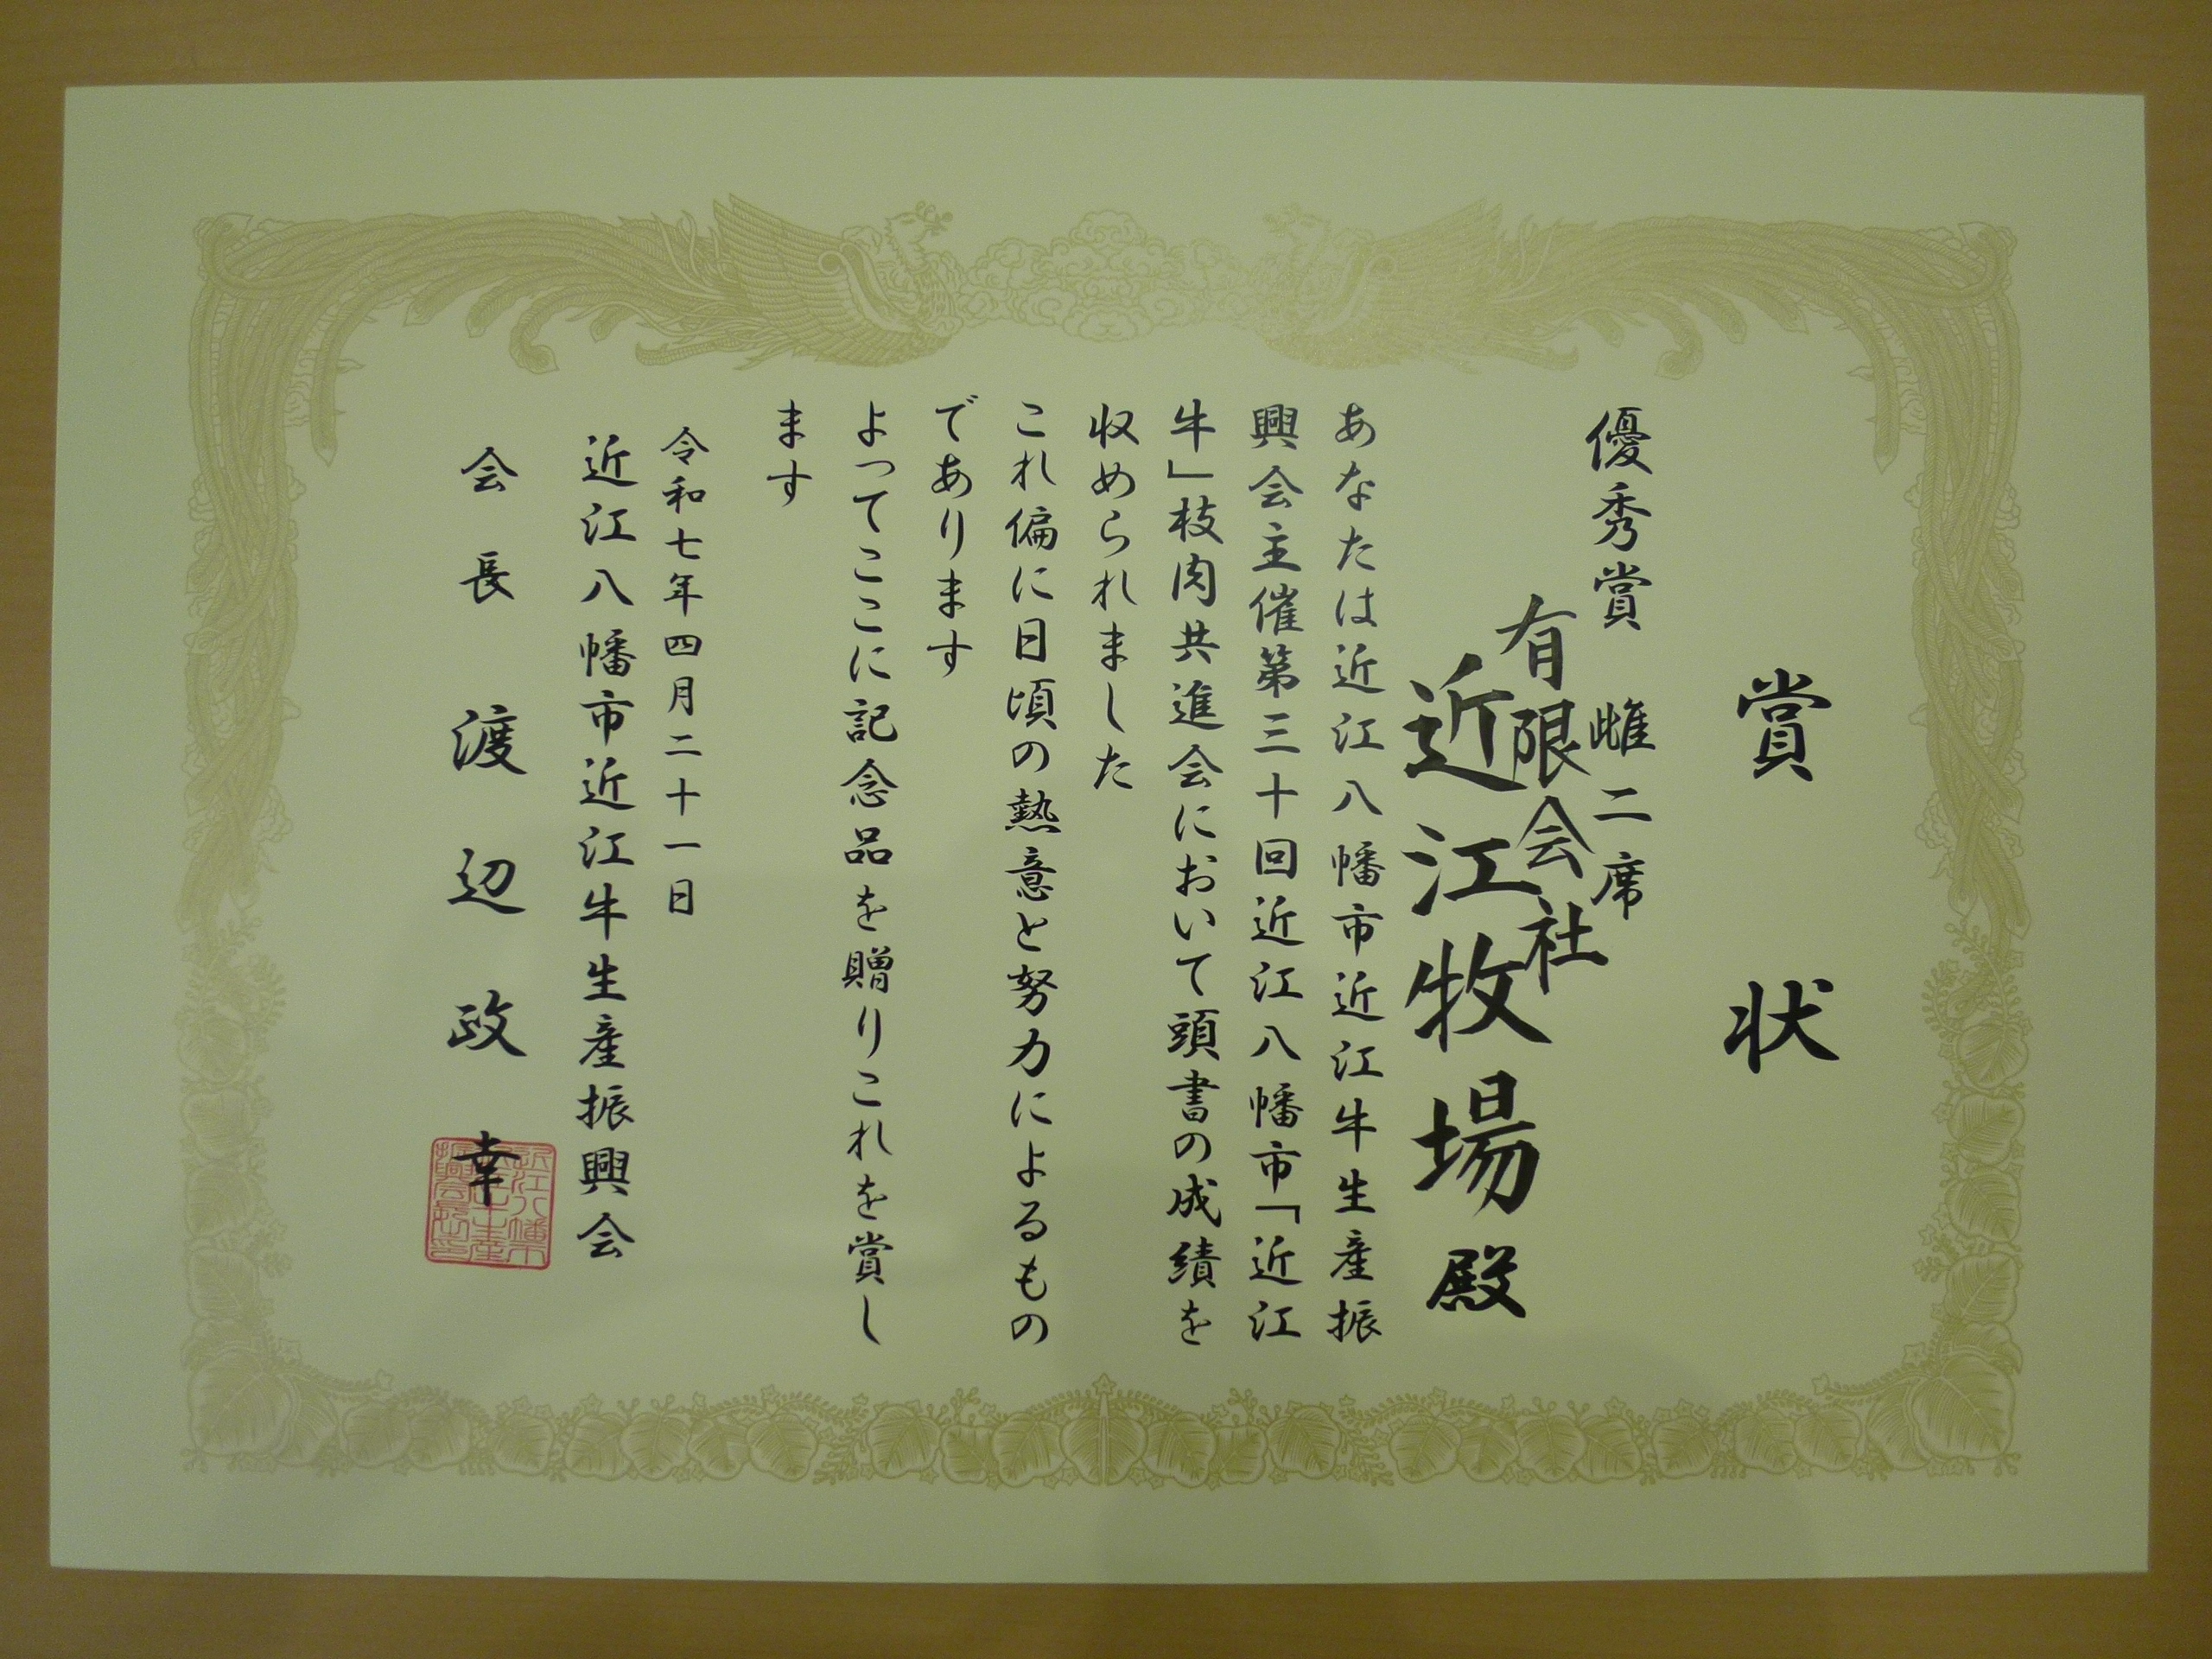 賞状
優秀賞 雌二席
有限会社
近江牧場殿
あなたは近江八幡市近江牛生産振
興会主催第三十回近江八幡市「近江
牛」枝肉共進会において頭書の成績を
収められました
これ偏に日頃の熱意と努力によるもの
であります
よってここに記念品を贈りこれを賞し
ます
令和七年四月二十一日
近江八幡市近江牛生産振興会
会長 渡辺政幸